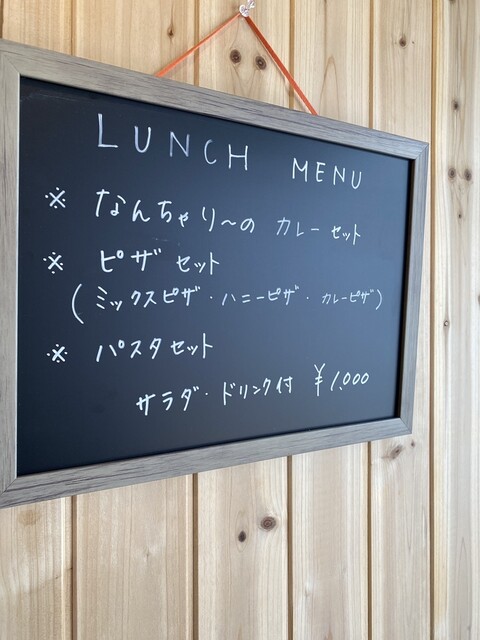 LUNCH MENU
※ なんちゃり〜の カレーセット
※ ピザ セット
(ミックスピザ・ハニーピザ・カレーピザ)
※ パスタセット
サラダ・ドリンク付 ¥1,000